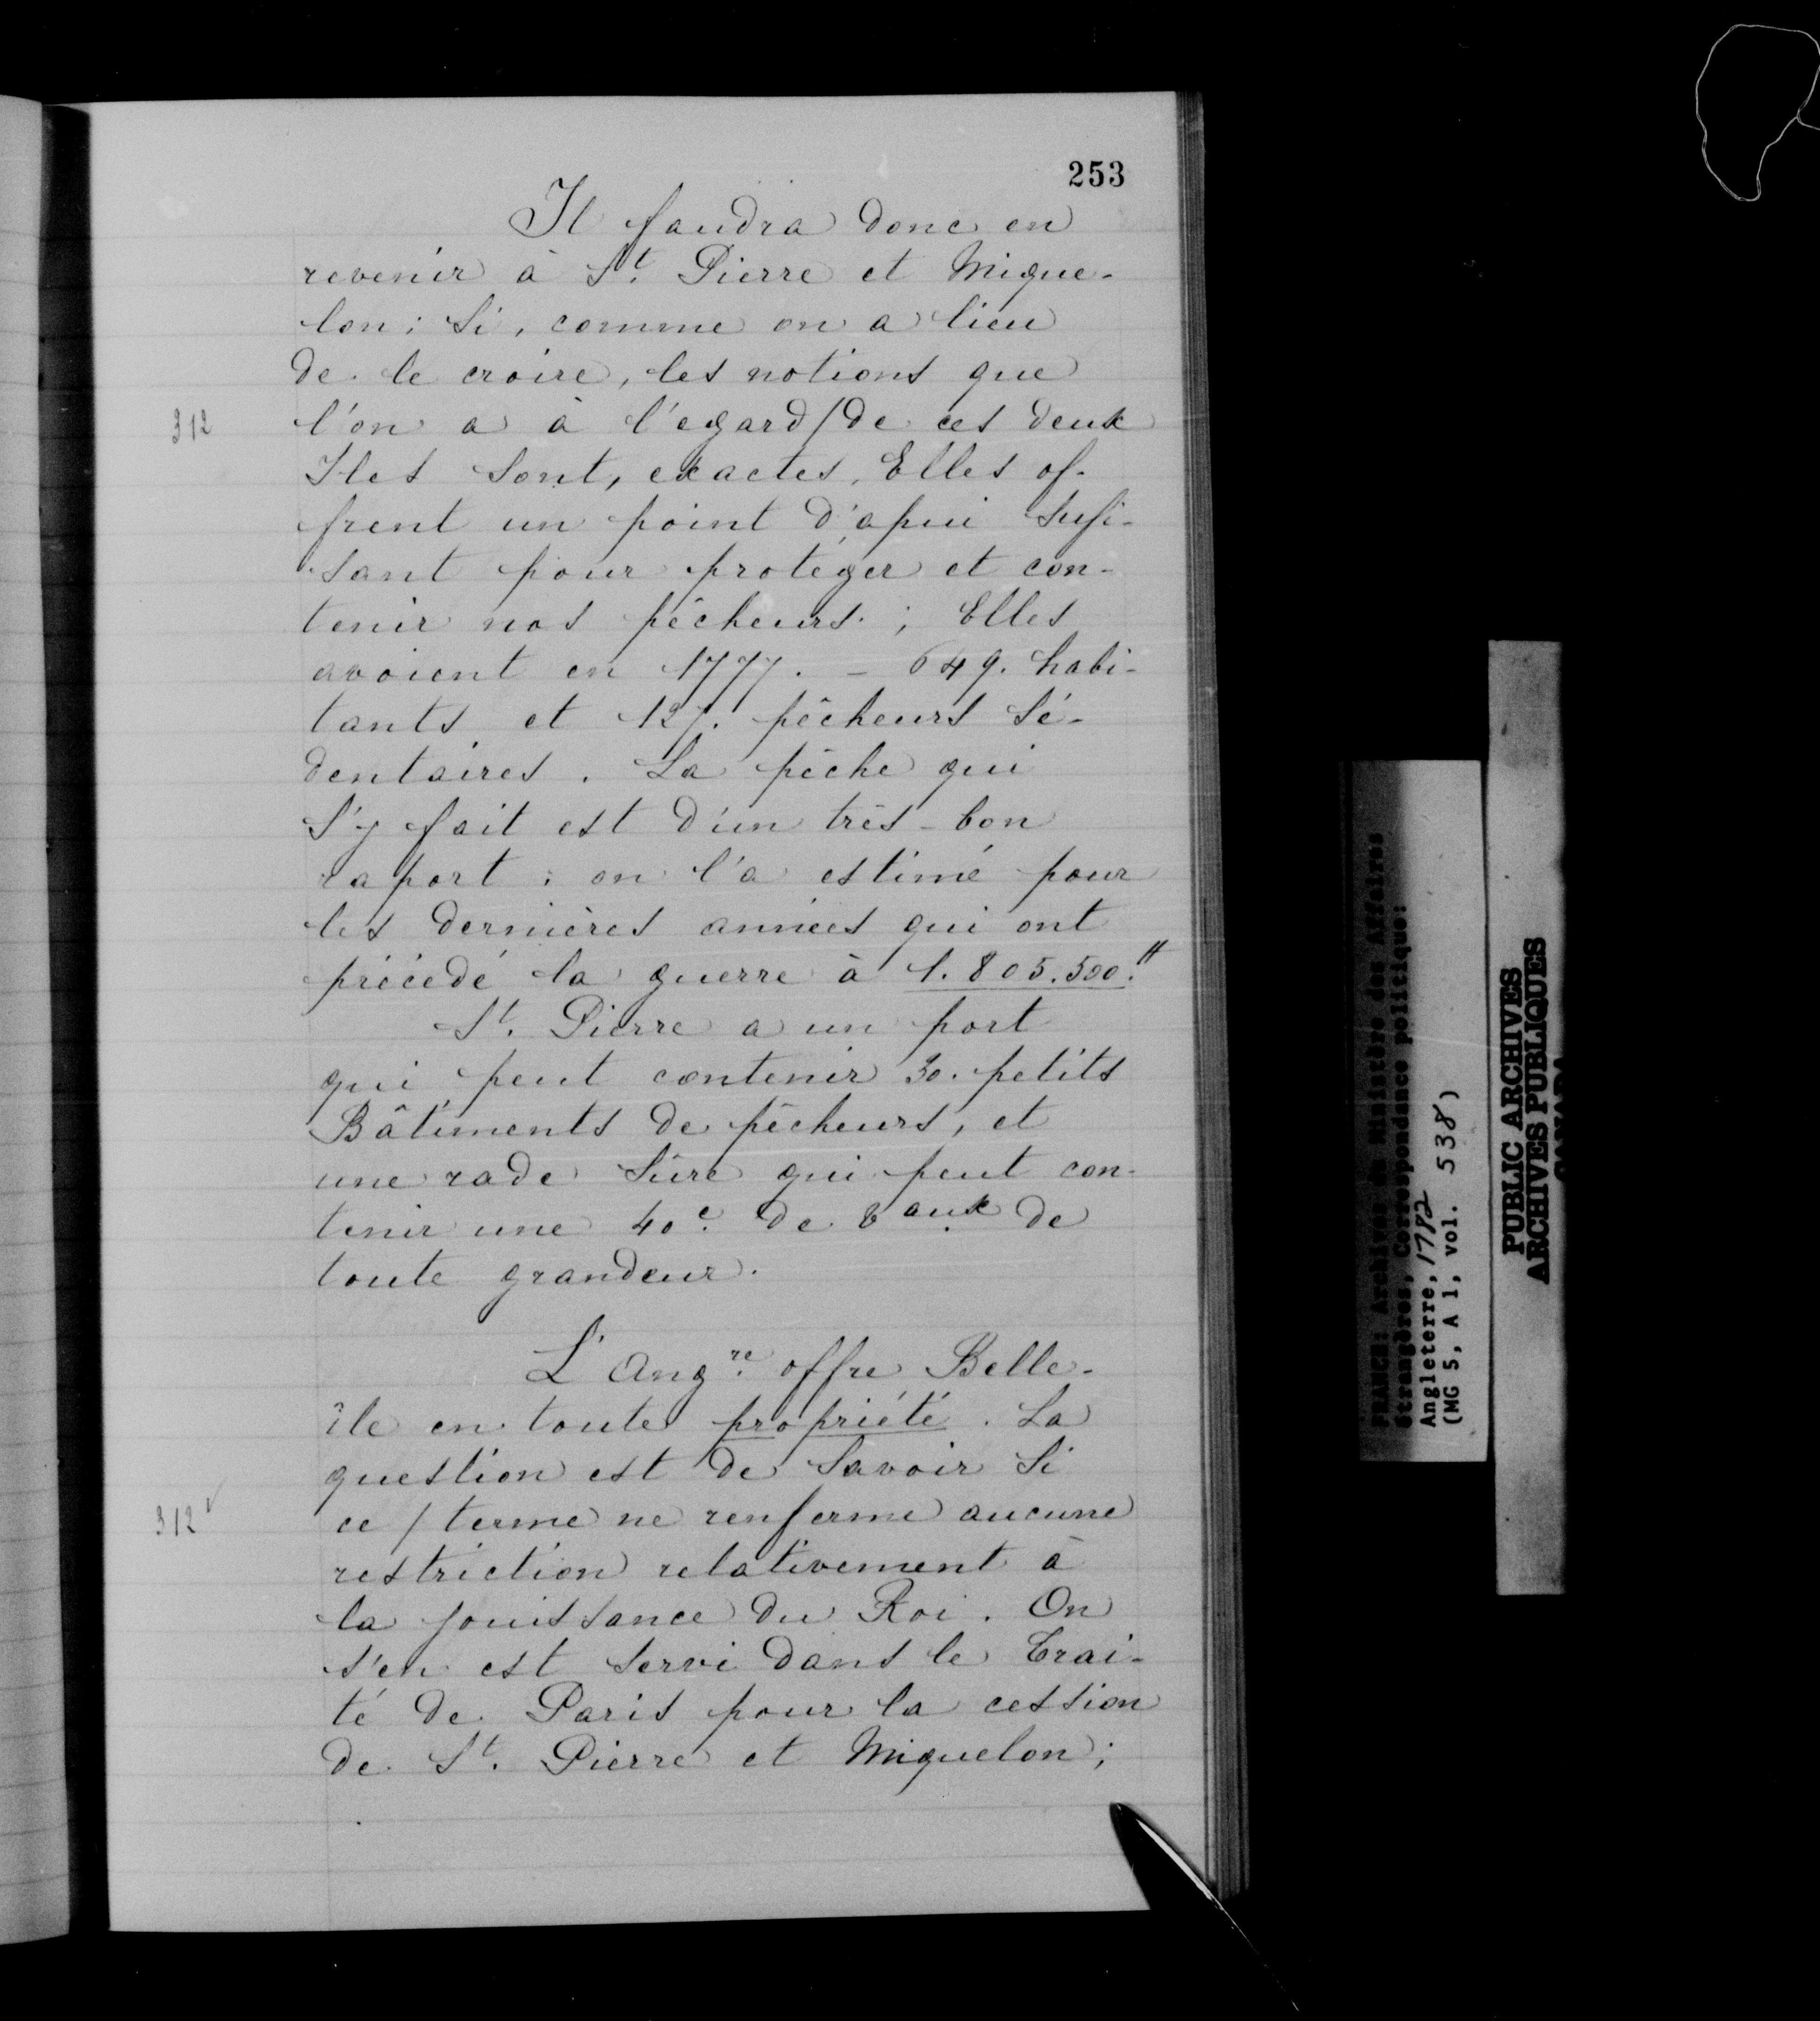 253
Il faudra donc en
revenir à St. Pierre et Mique-
lon: Si, comme on a lieu
de le croire, les notions que
312
l'on a à l'egard/de ces deux
Iles sont, exactes, Elles of-
frent un point d'apui Sufi-
sant pour protéger et con-
tenir nos pêcheurs; Elles
avoient en 1777. - 649. habi-
tants et 127. pêcheurs Sé-
dentaires. La pêche qui
S'y fait est d'un très-bon
raport: on l'a estimé pour
les dernières années qui ont
précédé la guerre à 1.805.500.#
St. Pierre a un port
qui peut contenir 30. petits
Bâtiments de pêcheurs, et
une rade Sûre qui peut con-
tenir une 40e. de Vaux. de
toute grandeur.
L'Angre. offre Belle-
île en toute propriété. La
question est de Savoir Si
312v
ce / terme ne renferme aucune
restriction relativement à
la jouissance du Roi. On
s'en est Servi dans le Trai-
té de Paris pour la cession
de St. Pierre et Miquelon;
FRANCE: Archives du Ministère des Affaires
étrangères, Correspondance politique:
Angleterre, 1782
(MG 5, A 1, vol. 538)
PUBLIC ARCHIVES
ARCHIVES PUBLIQUES
CANADA